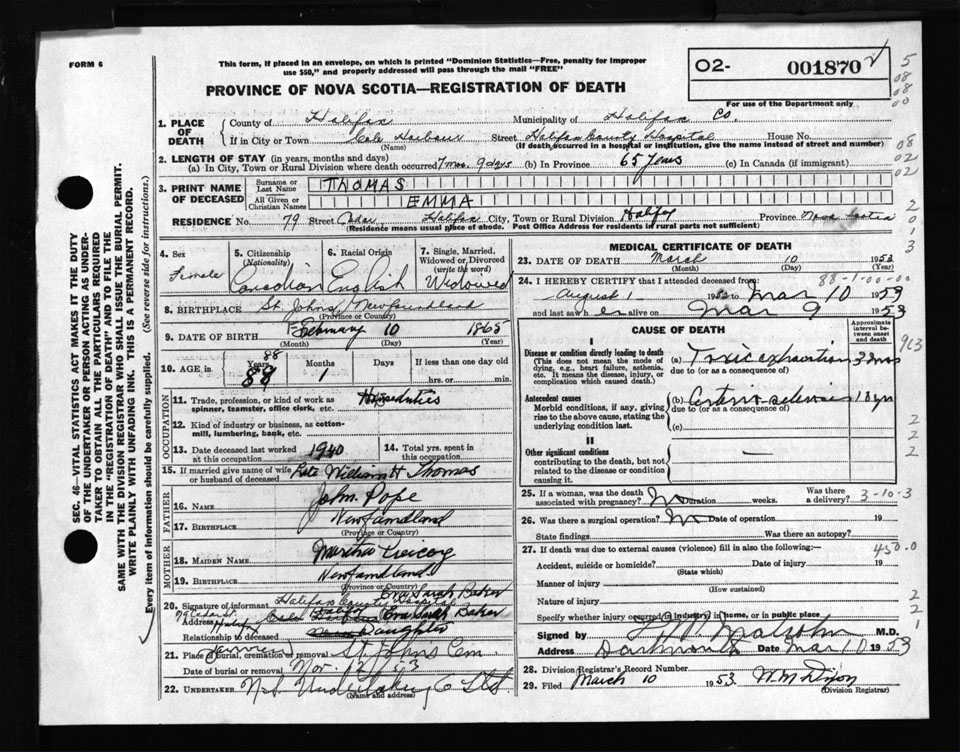 FORM 6
This form, if placed in an envelope, on which is printed "Dominion Statistics—Free, penalty for improper
use $50," and properly addressed will pass through the mail "FREE"
O2- 001870
PROVINCE OF NOVA SCOTIA—REGISTRATION OF DEATH
For use of the Department only
1. PLACE OF DEATH
County of Halifax Municipality of Halifax Co
If in City or Town Cole Harbour Street Halifax County Hospital House No.
(Name) (If death occurred in a hospital or institution, give the name instead of street and number)
2. LENGTH OF STAY (in years, months and days)
(a) In City, Town or Rural Division where death occurred 7 mos. 9 days (b) In Province 65 years (c) In Canada (if immigrant)
3. PRINT NAME OF DECEASED
Surname or Last Name THOMAS
All Given or Christian Names EMMA
RESIDENCE No. 79 Street Cedar Halifax City, Town or Rural Division Halifax Province Nova Scotia
(Residence means usual place of abode. Post Office Address for residents in rural parts not sufficient)
4. Sex Female
5. Citizenship (Nationality) Canadian
6. Racial Origin English
7. Single, Married, Widowed or Divorced (write the word) Widowed
8. BIRTHPLACE St. Johns Newfoundland
(Province or Country)
9. DATE OF BIRTH February 10 1865
(Month) (Day) (Year)
10. AGE in Years 88 Months 1 Days
If less than one day old
hrs. or min.
OCCUPATION
11. Trade, profession or kind of work as spinner, teamster, office clerk, etc. Houseduties
12. Kind of industry or business, as cotton-mill, lumbering, bank, etc.
13. Date deceased last worked at this occupation 1940
14. Total yrs. spent in this occupation
15. If married give name of wife or husband of deceased Late William H Thomas
FATHER
16. NAME John Pope
17. BIRTHPLACE Newfoundland
(Province or Country)
MOTHER
18. MAIDEN NAME Martha
19. BIRTHPLACE Newfoundland
(Province or Country)
Eva Sarah Baker
20. Signature of informant Halifax County Hospital
79 Cedar St. Address Halifax Cole Harbour Eva Sarah Baker
Relationship to deceased Daughter
21. Place of burial, cremation or removal St Johns Cem
Date of burial or removal 12 53
22. UNDERTAKER N.S. Undertaking Co Ltd
(Name and address)
MEDICAL CERTIFICATE OF DEATH
23. DATE OF DEATH March 10 1953
(Month) (Day) (Year)
88-1-00-00
24. I HEREBY CERTIFY that I attended deceased from:
August 1 1952 to Mar 10 1953
and last saw h er alive on Mar 9 1953
CAUSE OF DEATH
Approximate interval between onset and death
I
Disease or condition directly leading to death
(This does not mean the mode of dying, e.g., heart failure, asthenia, etc. It means the disease, injury, or complication which caused death.)
(a) Toxic exhaustion
due to (or as a consequence of)
Antecedent causes
Morbid conditions, if any, giving rise to the above cause, stating the underlying condition last.
(b) Arterio-sclerosis 10 yrs
due to (or as a consequence of)
(c)
II
Other significant conditions
contributing to the death, but not related to the disease or condition causing it.
25. If a woman, was the death associated with pregnancy? No Duration weeks. Was there delivery?
3-10-3
26. Was there a surgical operation? No Date of operation 19
State findings Was there an autopsy?
27. If death was due to external causes (violence) fill in also the following:— 450.0
Accident, suicide or homicide? Date of injury 19
(State which)
Manner of injury
(How sustained)
Nature of injury
Specify whether injury occurred in industry, in home, or in public place
Signed by M.D.
Address Dartmouth Date Mar 10 1953
28. Division Registrar's Record Number
29. Filed March 10 1953 W. M. Dixon
(Division Registrar)
SEC. 46—VITAL STATISTICS ACT MAKES IT THE DUTY
OF THE UNDERTAKER OR PERSON ACTING AS UNDER-
TAKER TO OBTAIN ALL THE PARTICULARS REQUIRED
IN THE "REGISTRATION OF DEATH" AND TO FILE THE
SAME WITH THE DIVISION REGISTRAR WHO SHALL ISSUE THE BURIAL PERMIT.
WRITE PLAINLY WITH UNFADING INK. THIS IS A PERMANENT RECORD.
Every item of information should be carefully supplied. (See reverse side for instructions.)